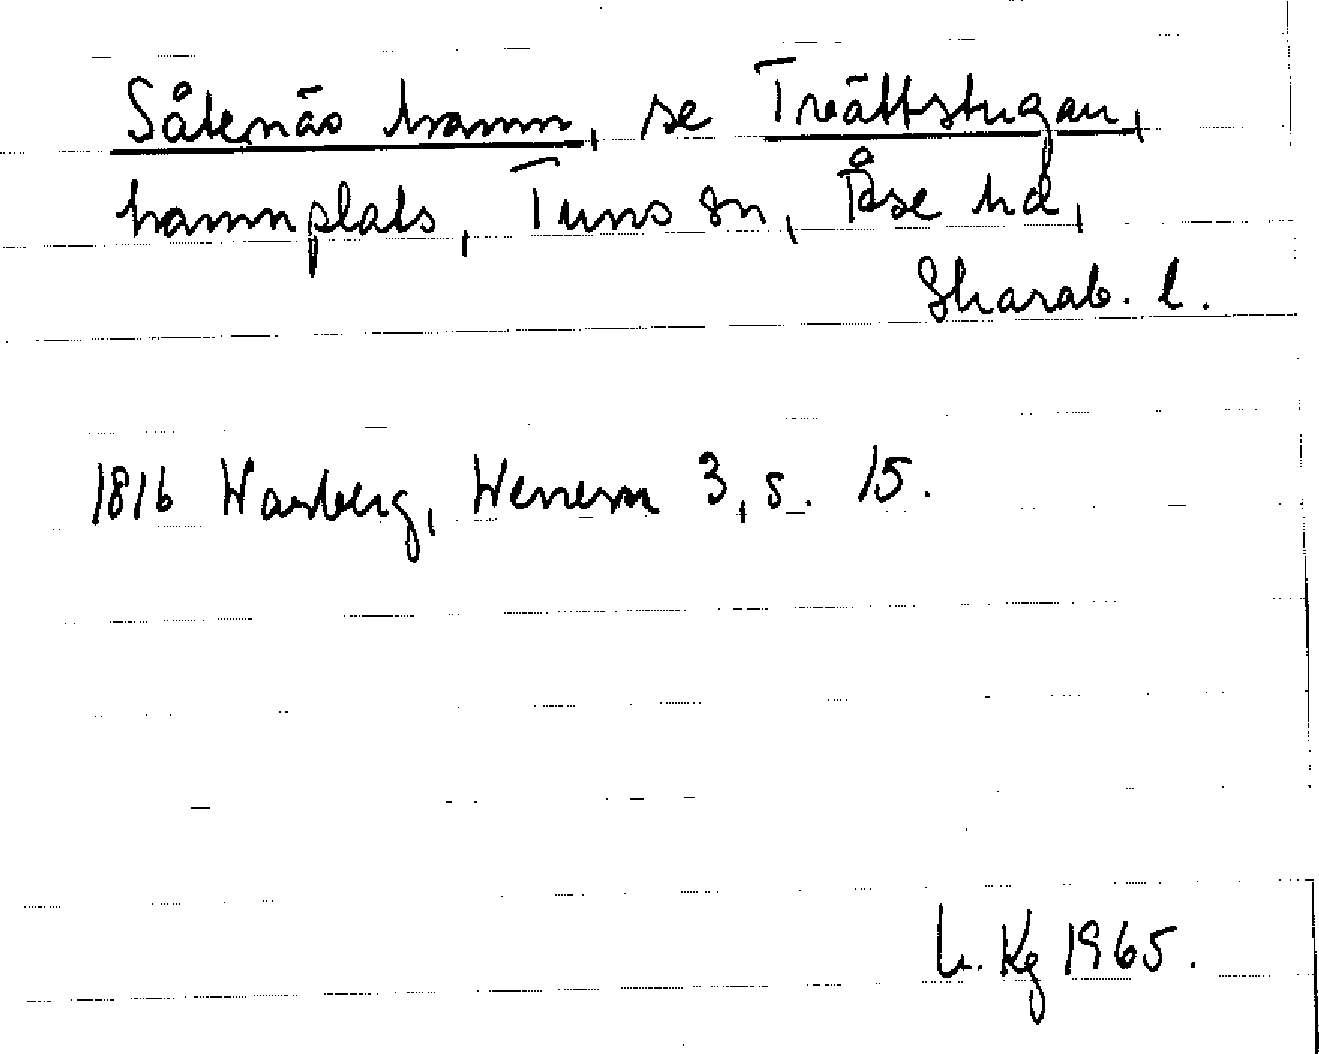 Såtenäs hamn, se Trättstugan,
hamnplats, Tuns sn, Åse hd,
Skarab. l.
1816 Warberg, Wenern 3, s. 15.
Kg 1965.